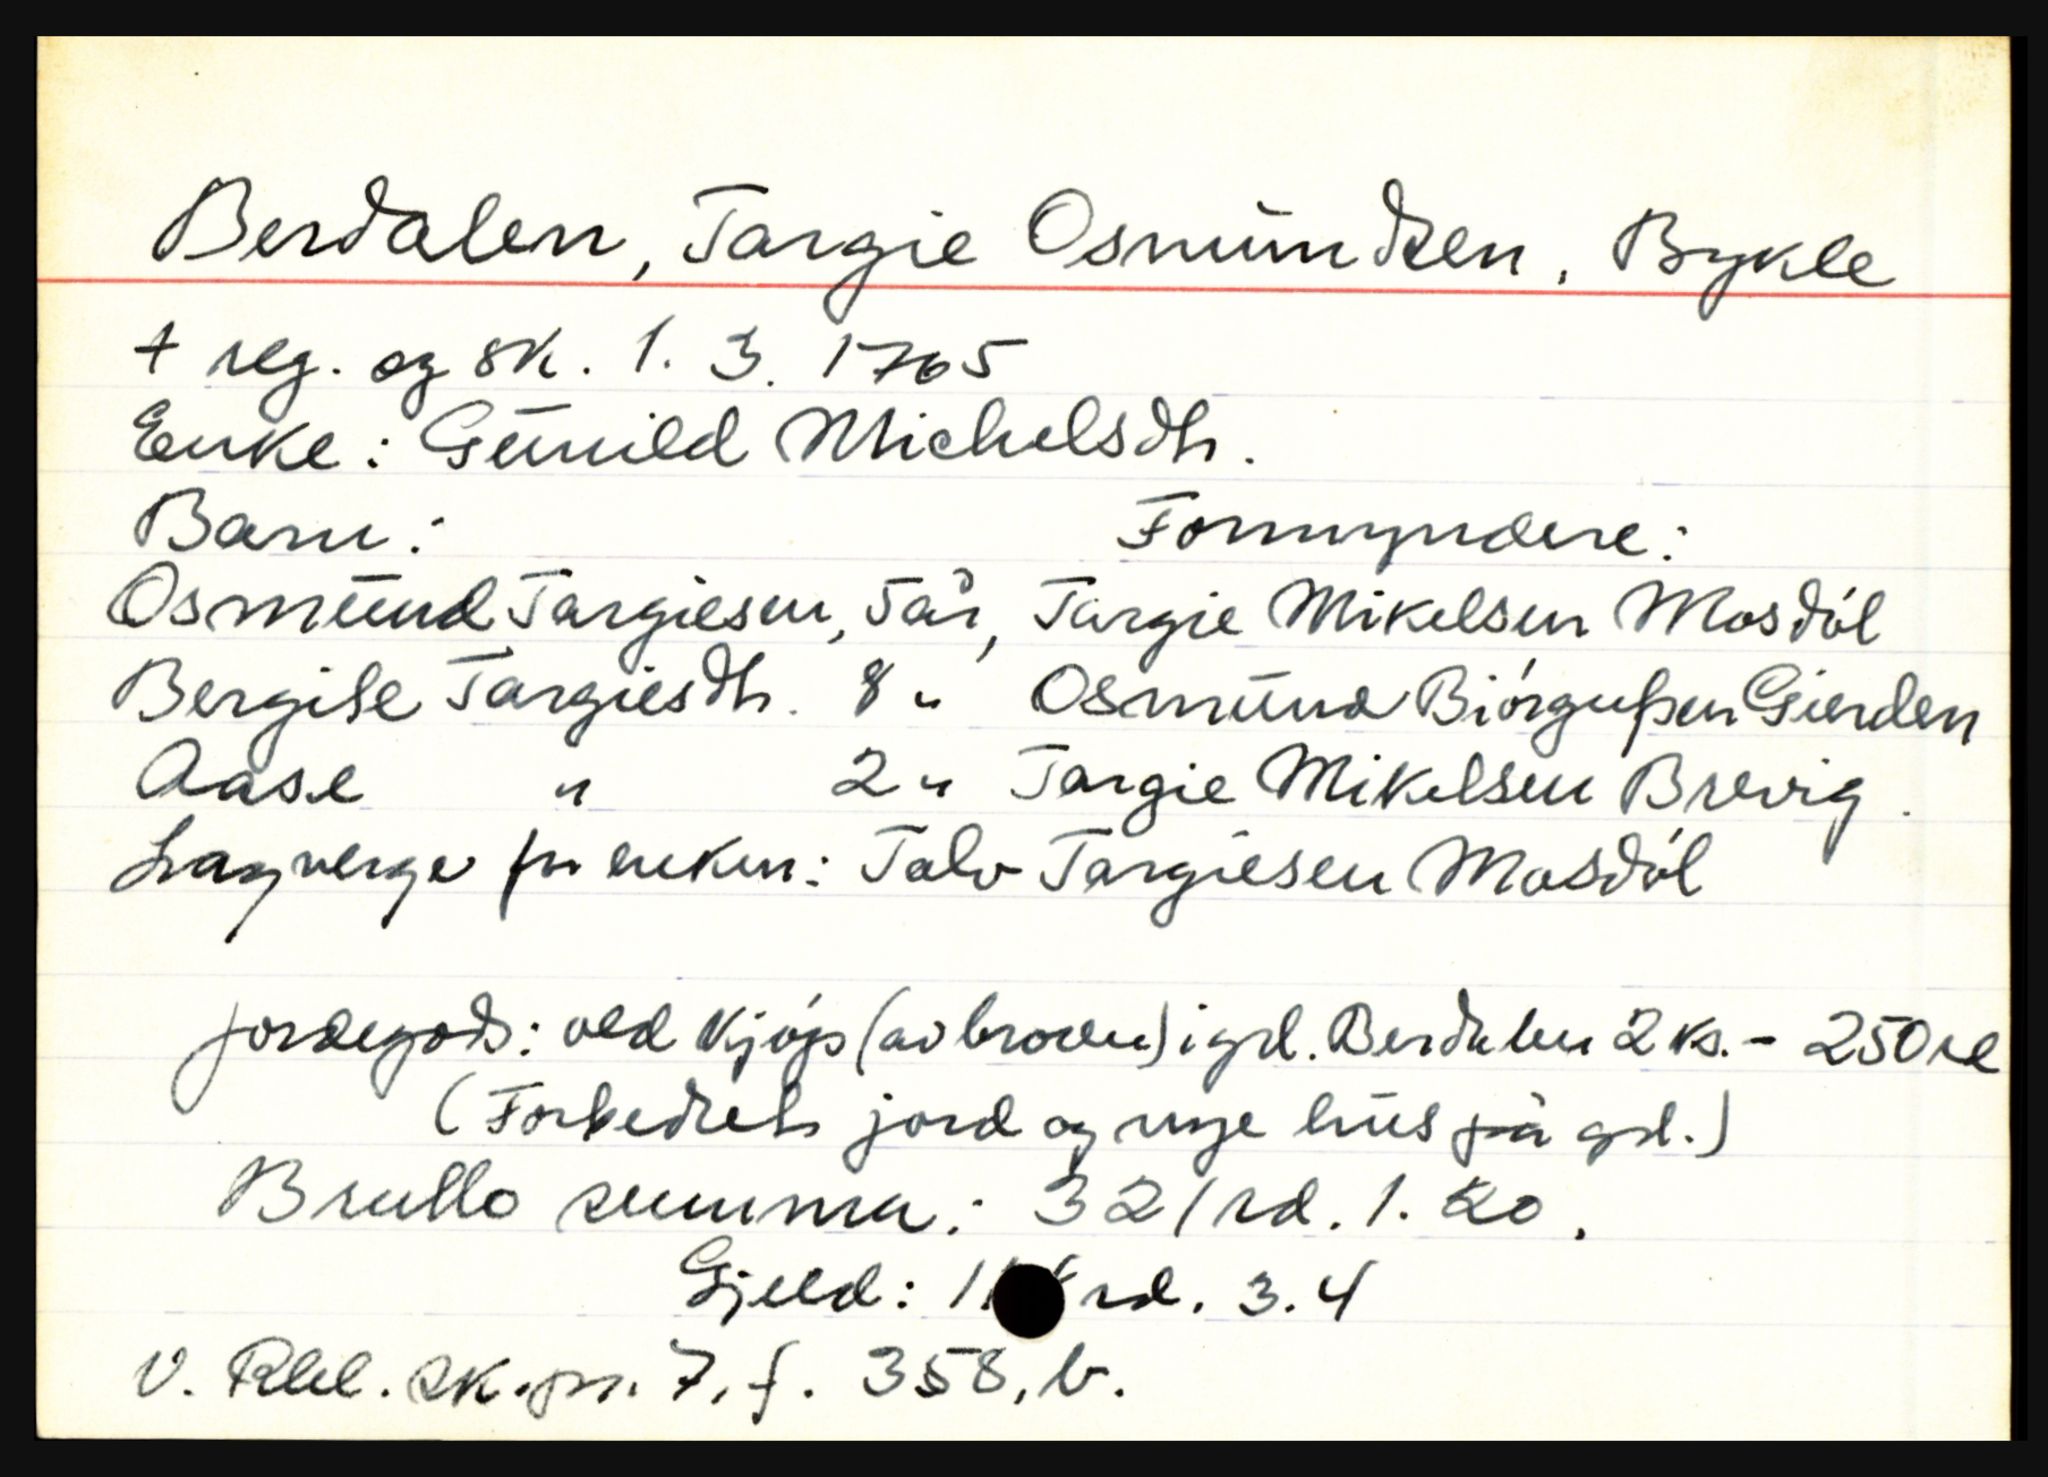 Berdalen, Targie Osmundsen, Bykle
+ reg. og sk. 1. 3. 1765
Enke: Gunild Michelsdtr.
Barn: Formyndere:
Osmund Targiesen, 5 år, Targie Mikelsen Mosdól
Bergite Targiesdtr. 8 " Osmund Biórgufsen Gierden
Aase " 2 " Targie Mikelsen Brevig.
Lagverge for enken: Talv Targiesen Mosdól
Jordegods: ved kjóp (av broren) i grd. Berdalen 2 ks. - 250 rd
(Forbedret jord og nye hus på grd.)
Brutto summa: 321 rd. 1. 20.
Gjeld: rd. 3. 4
V. Rbl. sk. pr. 7, f. 358, b.